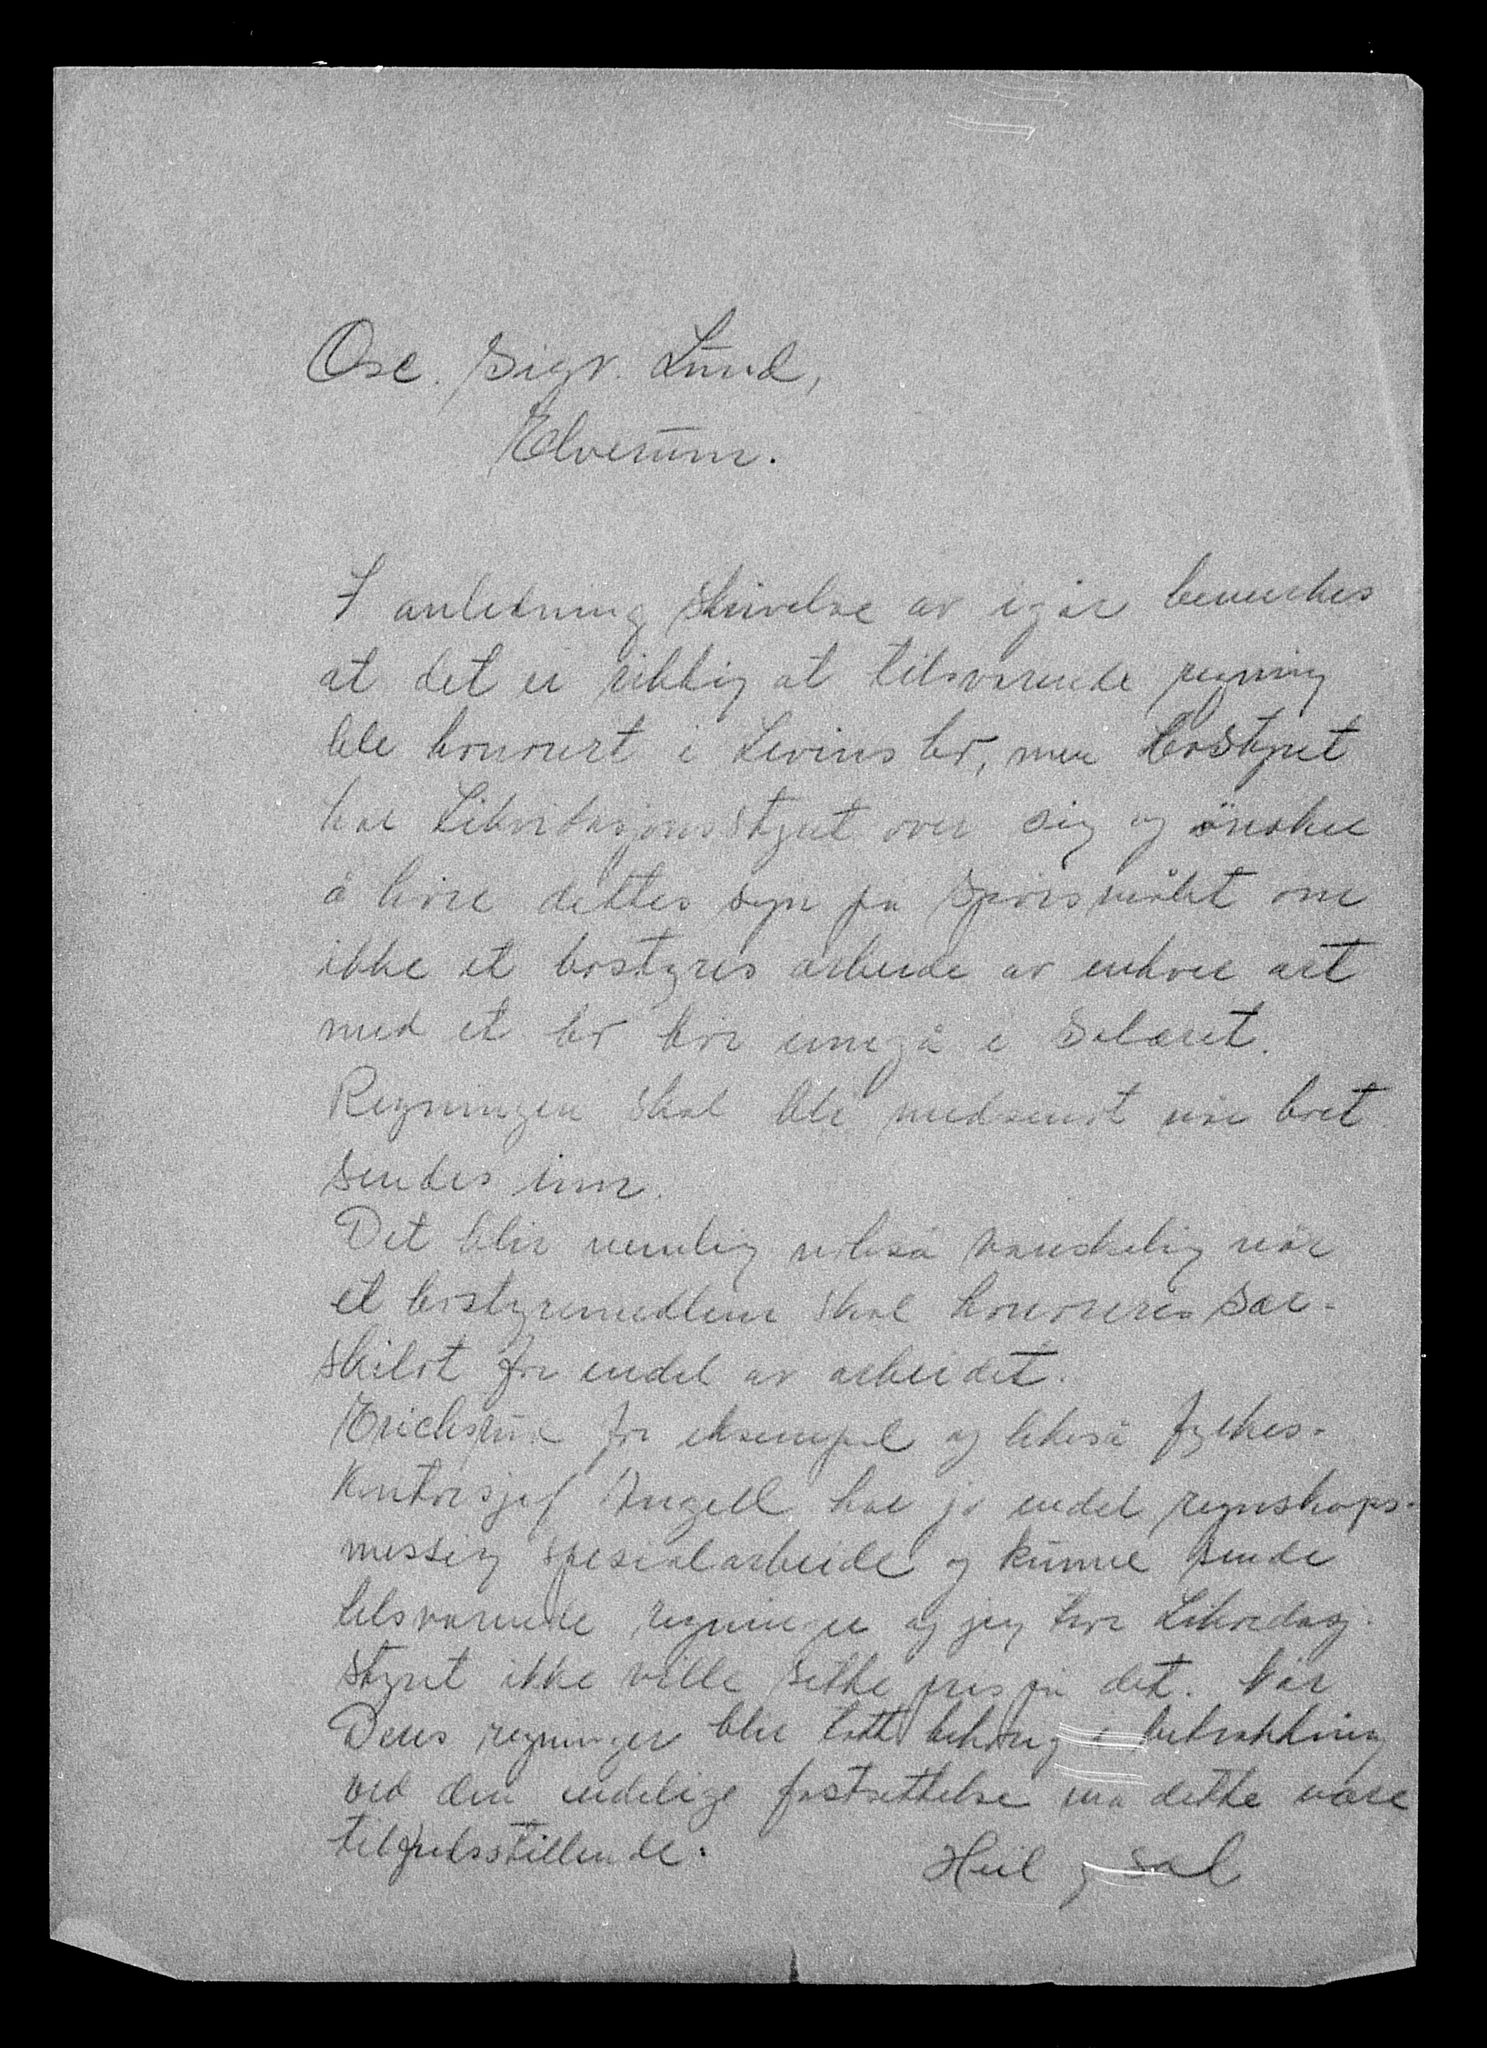 Osc. Sigv. Lund,
Elverum.
I anledning skrivelse av igår bemerkes
at det er riktig at tilsvarende regning
ble honorert i Levins bo, men bostyret
har Likvidasjonsstyret over sig og önsker
å höre dettes syn på spörsmålet om
ikke et bostyres arbeide av enhver art
med et bo bör inngå i salæret.
Regningen skal bli medsendt når boet
sendes inn.
Det blir nemlig også vanskelig når
et bostyremedlem skal honoreres sær-
skilt for endel av arbeidet.
Erichsrud for eksempel og likeså fylkes-
kontorsjef Angell har jo endel regnskaps-
messig spesialarbeide og kunne sende
tilsvarende regninger og jeg tror Likvidasj.
styret ikke ville sette pris på det. Når
Deres regninger blir tatt behörig i betraktning
ved den endelige fastsettelse må dette være
tilfredsstillende.
Heil og sæl